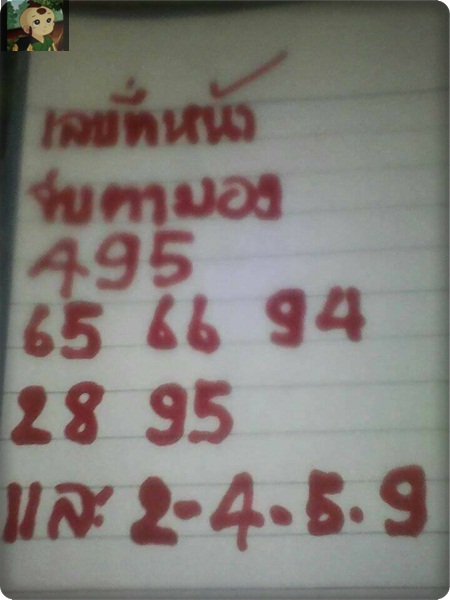 เลขที่หน้า
จับตามอง
495
65 66 94
28 95
และ 2-4.5.9